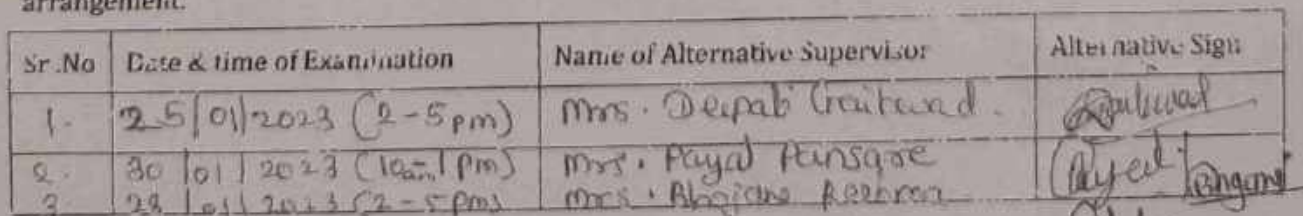 arrangement.
Sr.No Date & time of Examination Name of Alternative Supervisor Alternative Sign
1. 25/01/2023 (2-5pm) Mrs. Deepali Gaikwad. Gaikwad
2. 30/01/2023 (10am-1pm) Mrs. Payal Pansare
3 28/01/2023 (2-5pm) Mrs.